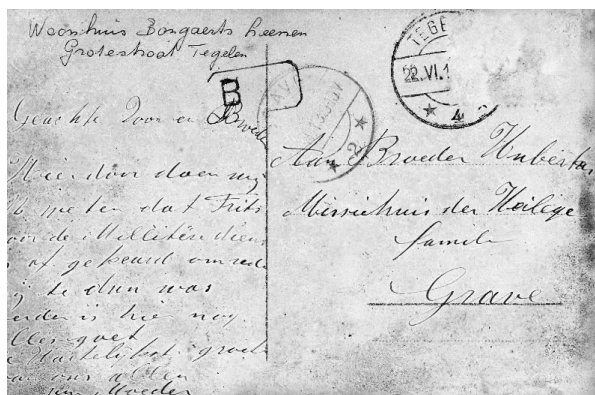 Woonhuis Bongaerts Leenen
Grotestraat Tegelen
B
TEGE
22.VI.1
4
2
Geachte Zoon en Broeder
Hierdoor doen wij
U weten dat Frits
voor de Millitére dien
is af gekeurd omrede
hij te dun was
verder is hie nog
alles goet
de Hartelijkste groete
van ons allen
uw Moeder
Aan Broeder Hubertus
Missiehuis der Heilige
familie
Grave